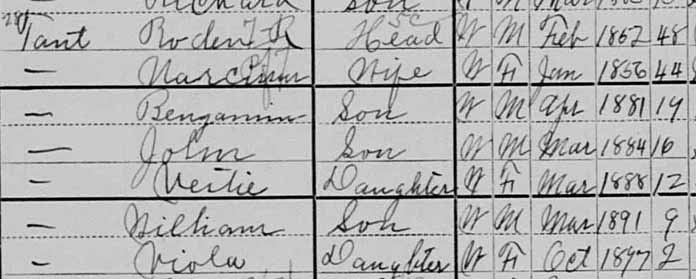 Richard Son
Tant Roden R Head W M Feb 1852 48
— Wife W F Jan 1856 44
— Bengamin Son W M Apr 1881 19
— John Son W M Mar 1884 16
— Daughter W F Mar 1888 12
— William Son W M Mar 1891 9
— Viola Daughter W F Oct 1897 2